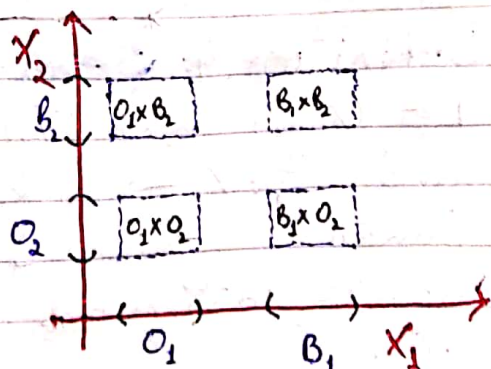 X₂
B₂ O₁×B₂ B₁×B₂
O₂ O₁×O₂ B₁×O₂
O₁ B₁ X₁